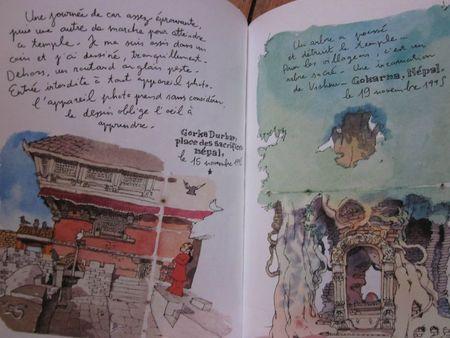 Une journée de car assez éprouvante,
puis une autre de marche pour atteindre
ce temple. Je me suis assis dans un
coin et j'ai dessiné, tranquillement.
Dehors, un putand on glais peste.
Entrée interdite à tout appareil photo.
l'appareil photo prend sans considérer
le dessin oblige l'oeil à
apprendre.
Gorka Durbar,
place des sacrifices
népal,
le 15 novembre
Un arbre a poussé
et détruit le temple.
Pour les villageois, c'est un
arbre sacré. Une incarnation
de Vishnu - Gokarna, Népal,
le 19 novembre 1995